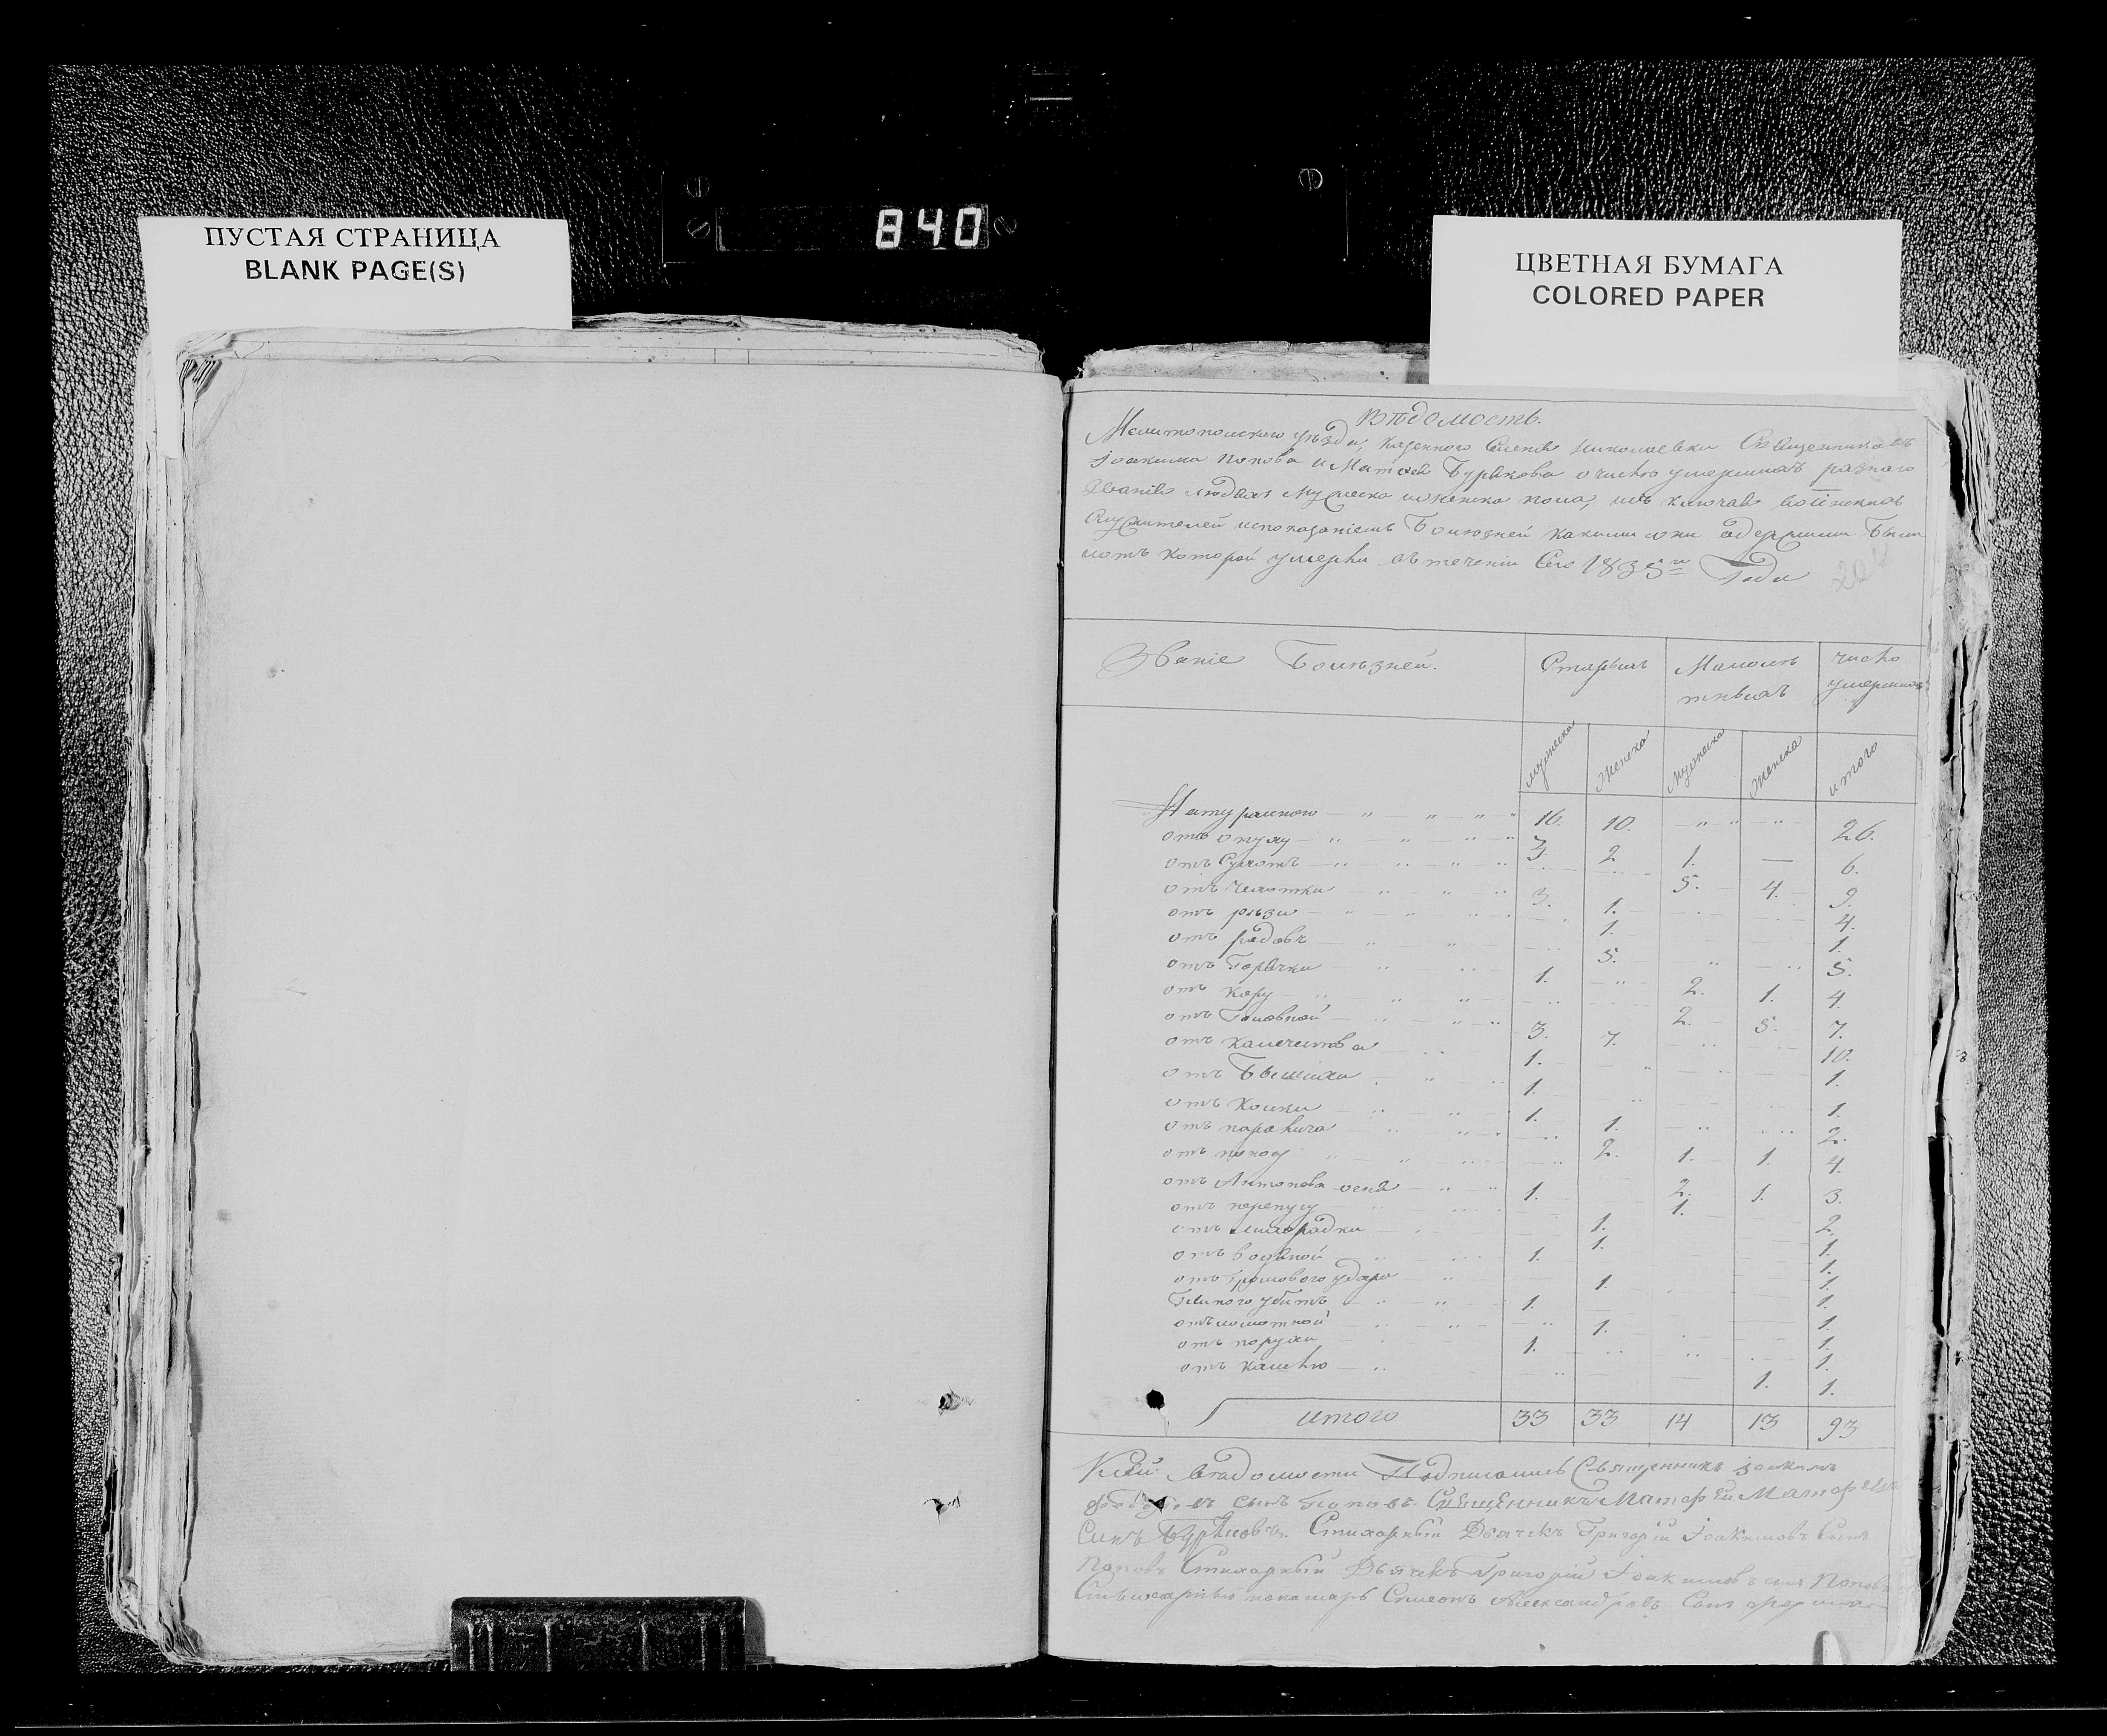 840
ПУСТАЯ СТРАНИЦА
BLANK PAGE(S)
ЦВЕТНАЯ БУМАГА
COLORED PAPER
Вѣдомость.
Мелитопольского уѣзда, казенного Селенія Николаевки Священниковъ
Іоакима Попова и Матфея Бурякова о числѣ умершихъ разного
Званія людехъ мужеска и женска пола,
Служителей и показаніемъ Болюзней какими они одержими были
и отъ которой умерли въ теченіи Сего 1835го Года
Званіе Болюзней.
Старыхъ
Малолѣ
тныхъ
число
умершихъ
мужеска
женска
мужеска
женска
итого
Натурального 16. 10. 26.
отъ опуху 3. 2 1. — 6.
отъ Сухотъ 5. 4. 9.
отъ чехотки 3. 1. 4.
отъ рѣзи 1. 1.
отъ родовъ 5. 5.
отъ Горячки 1. 2. 1. 4.
отъ кору 2. 5. 7.
отъ Головной 3. 7. 10.
отъ 1. 1.
отъ Бешихи 1. 1.
отъ Колики 1. 1. 2.
отъ паралича 2. 1. 1. 4.
отъ 2. 1. 3.
отъ Антонова огня 1. 1. 2.
отъ перепугу 1. 1.
отъ лихорадки 1. 1.
отъ водяной 1. 1.
отъ Громового удара 1. 1.
убитъ 1. 1.
отъ ломотной 1. 1.
отъ порухи 1. 1.
отъ кашлю 1. 1.
итого 33 33 14 13 93
Ксей вѣдомости Подписались Священникъ Іоакимъ
сынъ Поповъ. Священникъ Матфей Матфеевъ
Сынъ Буряковъ. Стихарный Дьячекъ Григорій Іоакимовъ Сынъ
Поповъ Стихарный Дьячекъ Григорій Іоакимовъ сынъ Поповъ
пономарь Симеонъ Александровъ Сынъ